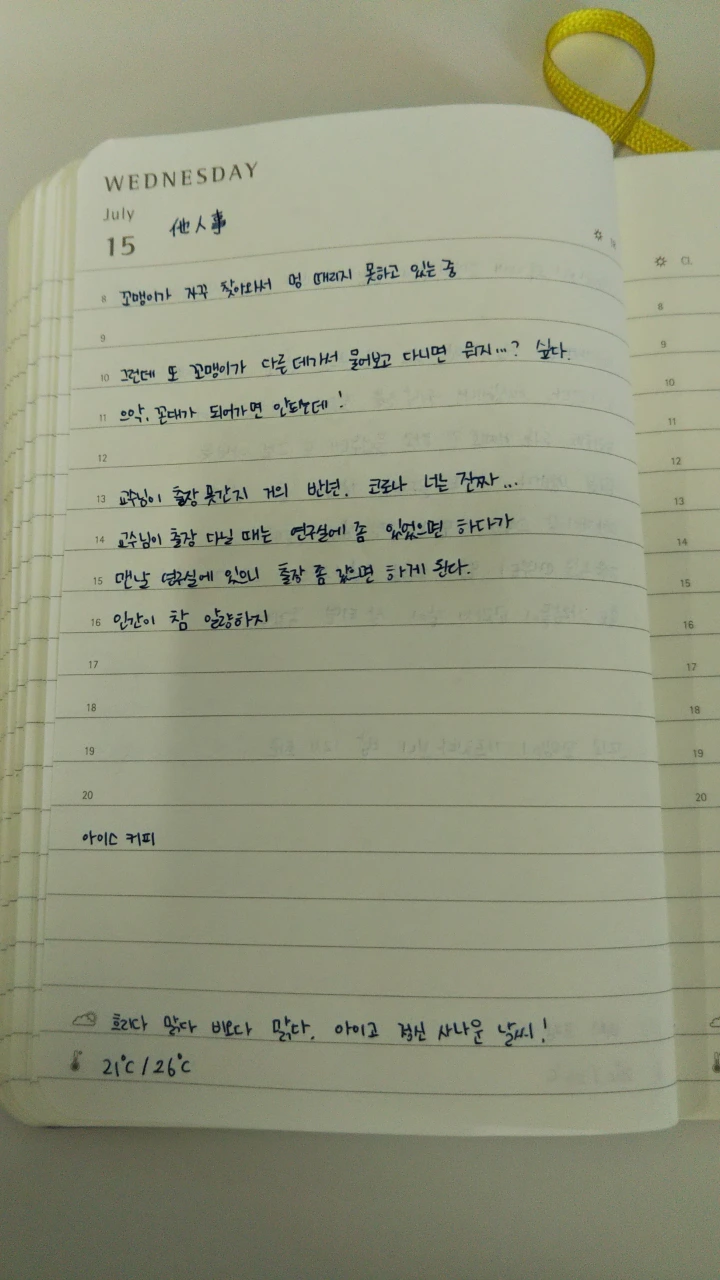 WEDNESDAY
July
15 他人事
8 꼬맹이가 자꾸 찾아와서 멍 때리지 못하고 있는 중
9
10 그런데 또 꼬맹이가 다른데가서 물어보고 다니면 뭐지...? 싶다.
11 으악, 꼰대가 되어가면 안되는데!
12
13 교수님이 출장 못간지 거의 반년. 코로나 너는 진짜...
14 교수님이 출장 다닐 때는 연구실에 좀 있었으면 하다가
15 맨날 연구실에 있으니 출장 좀 갔으면 하게 된다.
16 인간이 참 얄량하지
17
18
19
20
아이스 커피
흐리다 맑다 비오다 맑다. 아이고 정신 사나운 날씨!
21°C / 26°C
8
9
10
11
12
13
14
15
16
17
18
19
20